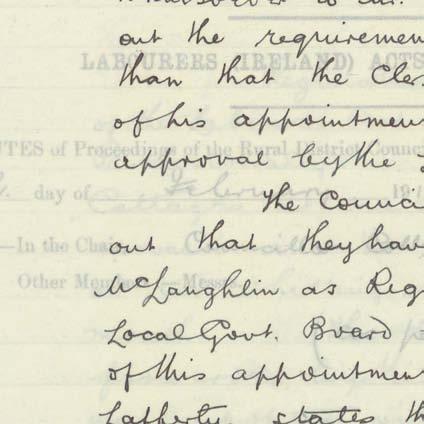 out the requiremen
LABOURERS (IRELAND) ACTS
than that the Cler
of his appointmen
UTES of Proceedings of the Rural District Counci
approval by the
day of February 19
The Counci
—In the Chair
out that they hav
Other Members—Messrs.
McLaughlin as Reg
Local Govt. Board
of this appointmen
Lafferty, states th